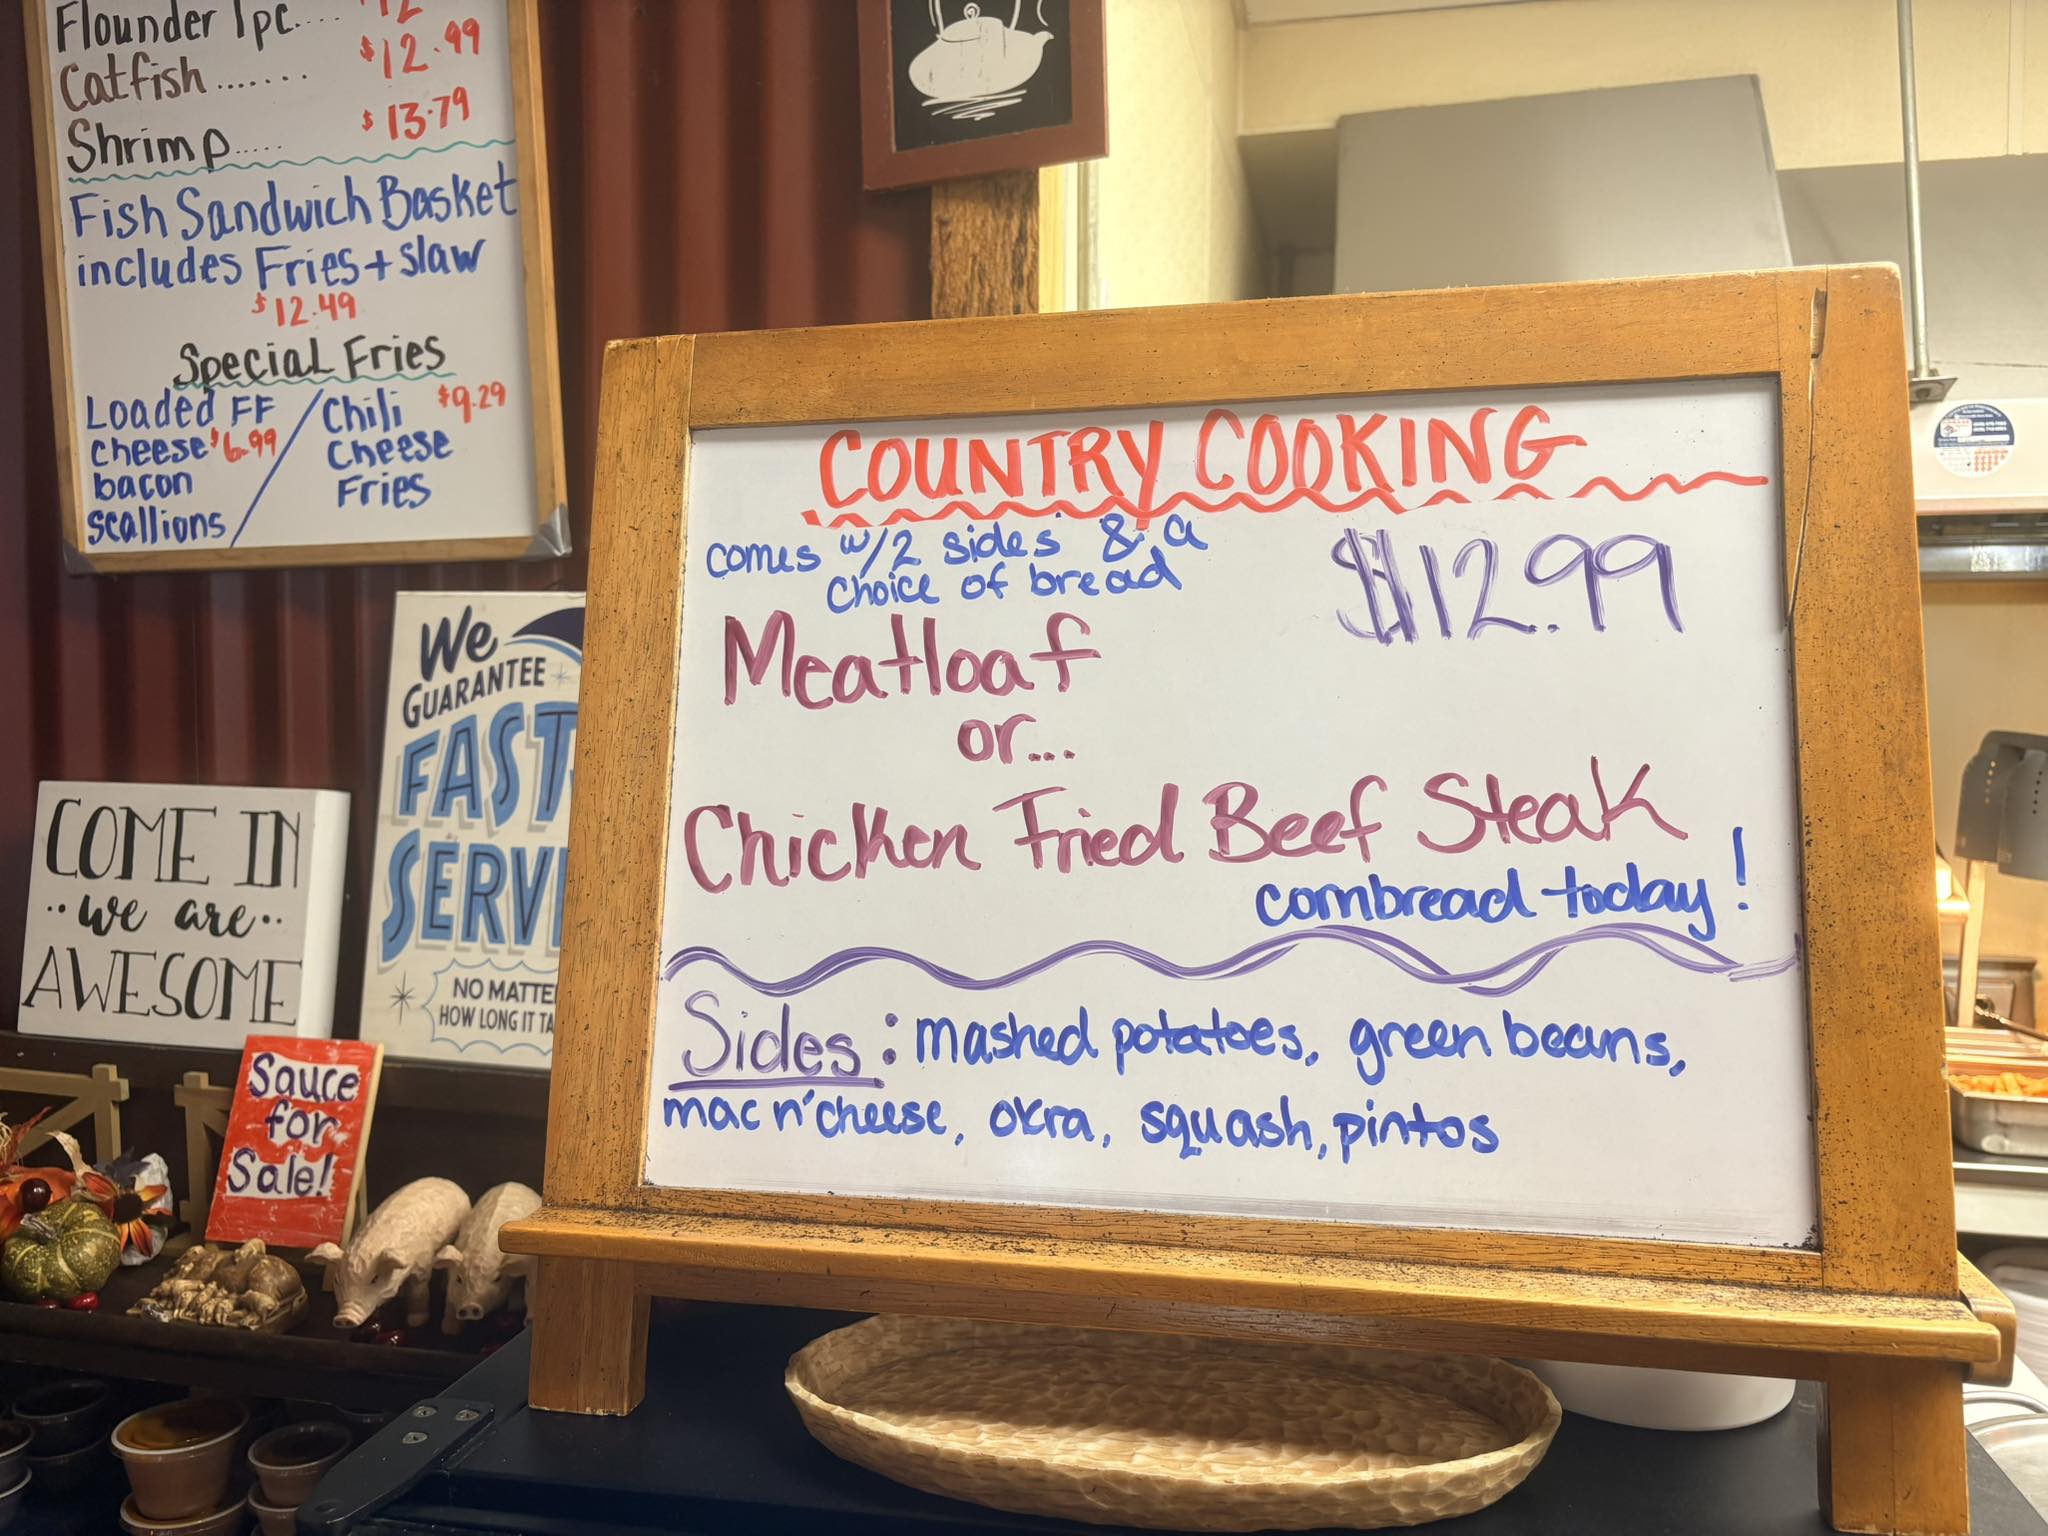 Flounder 1pc....
Catfish....... $12.99
Shrimp..... $13.79
Fish Sandwich Basket
includes Fries + slaw
$12.49
Special Fries
Loaded FF
cheese $6.99
bacon
scallions
Chili $9.29
Cheese
Fries
We
GUARANTEE
FAST
SERV
NO MATTE
HOW LONG IT TA
COME IN
we are
AWESOME
Sauce
for
Sale!
COUNTRY COOKING
comes w/2 sides & a
choice of bread
$12.99
Meatloaf
or...
Chicken Fried Beef Steak
cornbread today!
Sides: mashed potatoes, green beans,
mac n' cheese, okra, squash, pintos